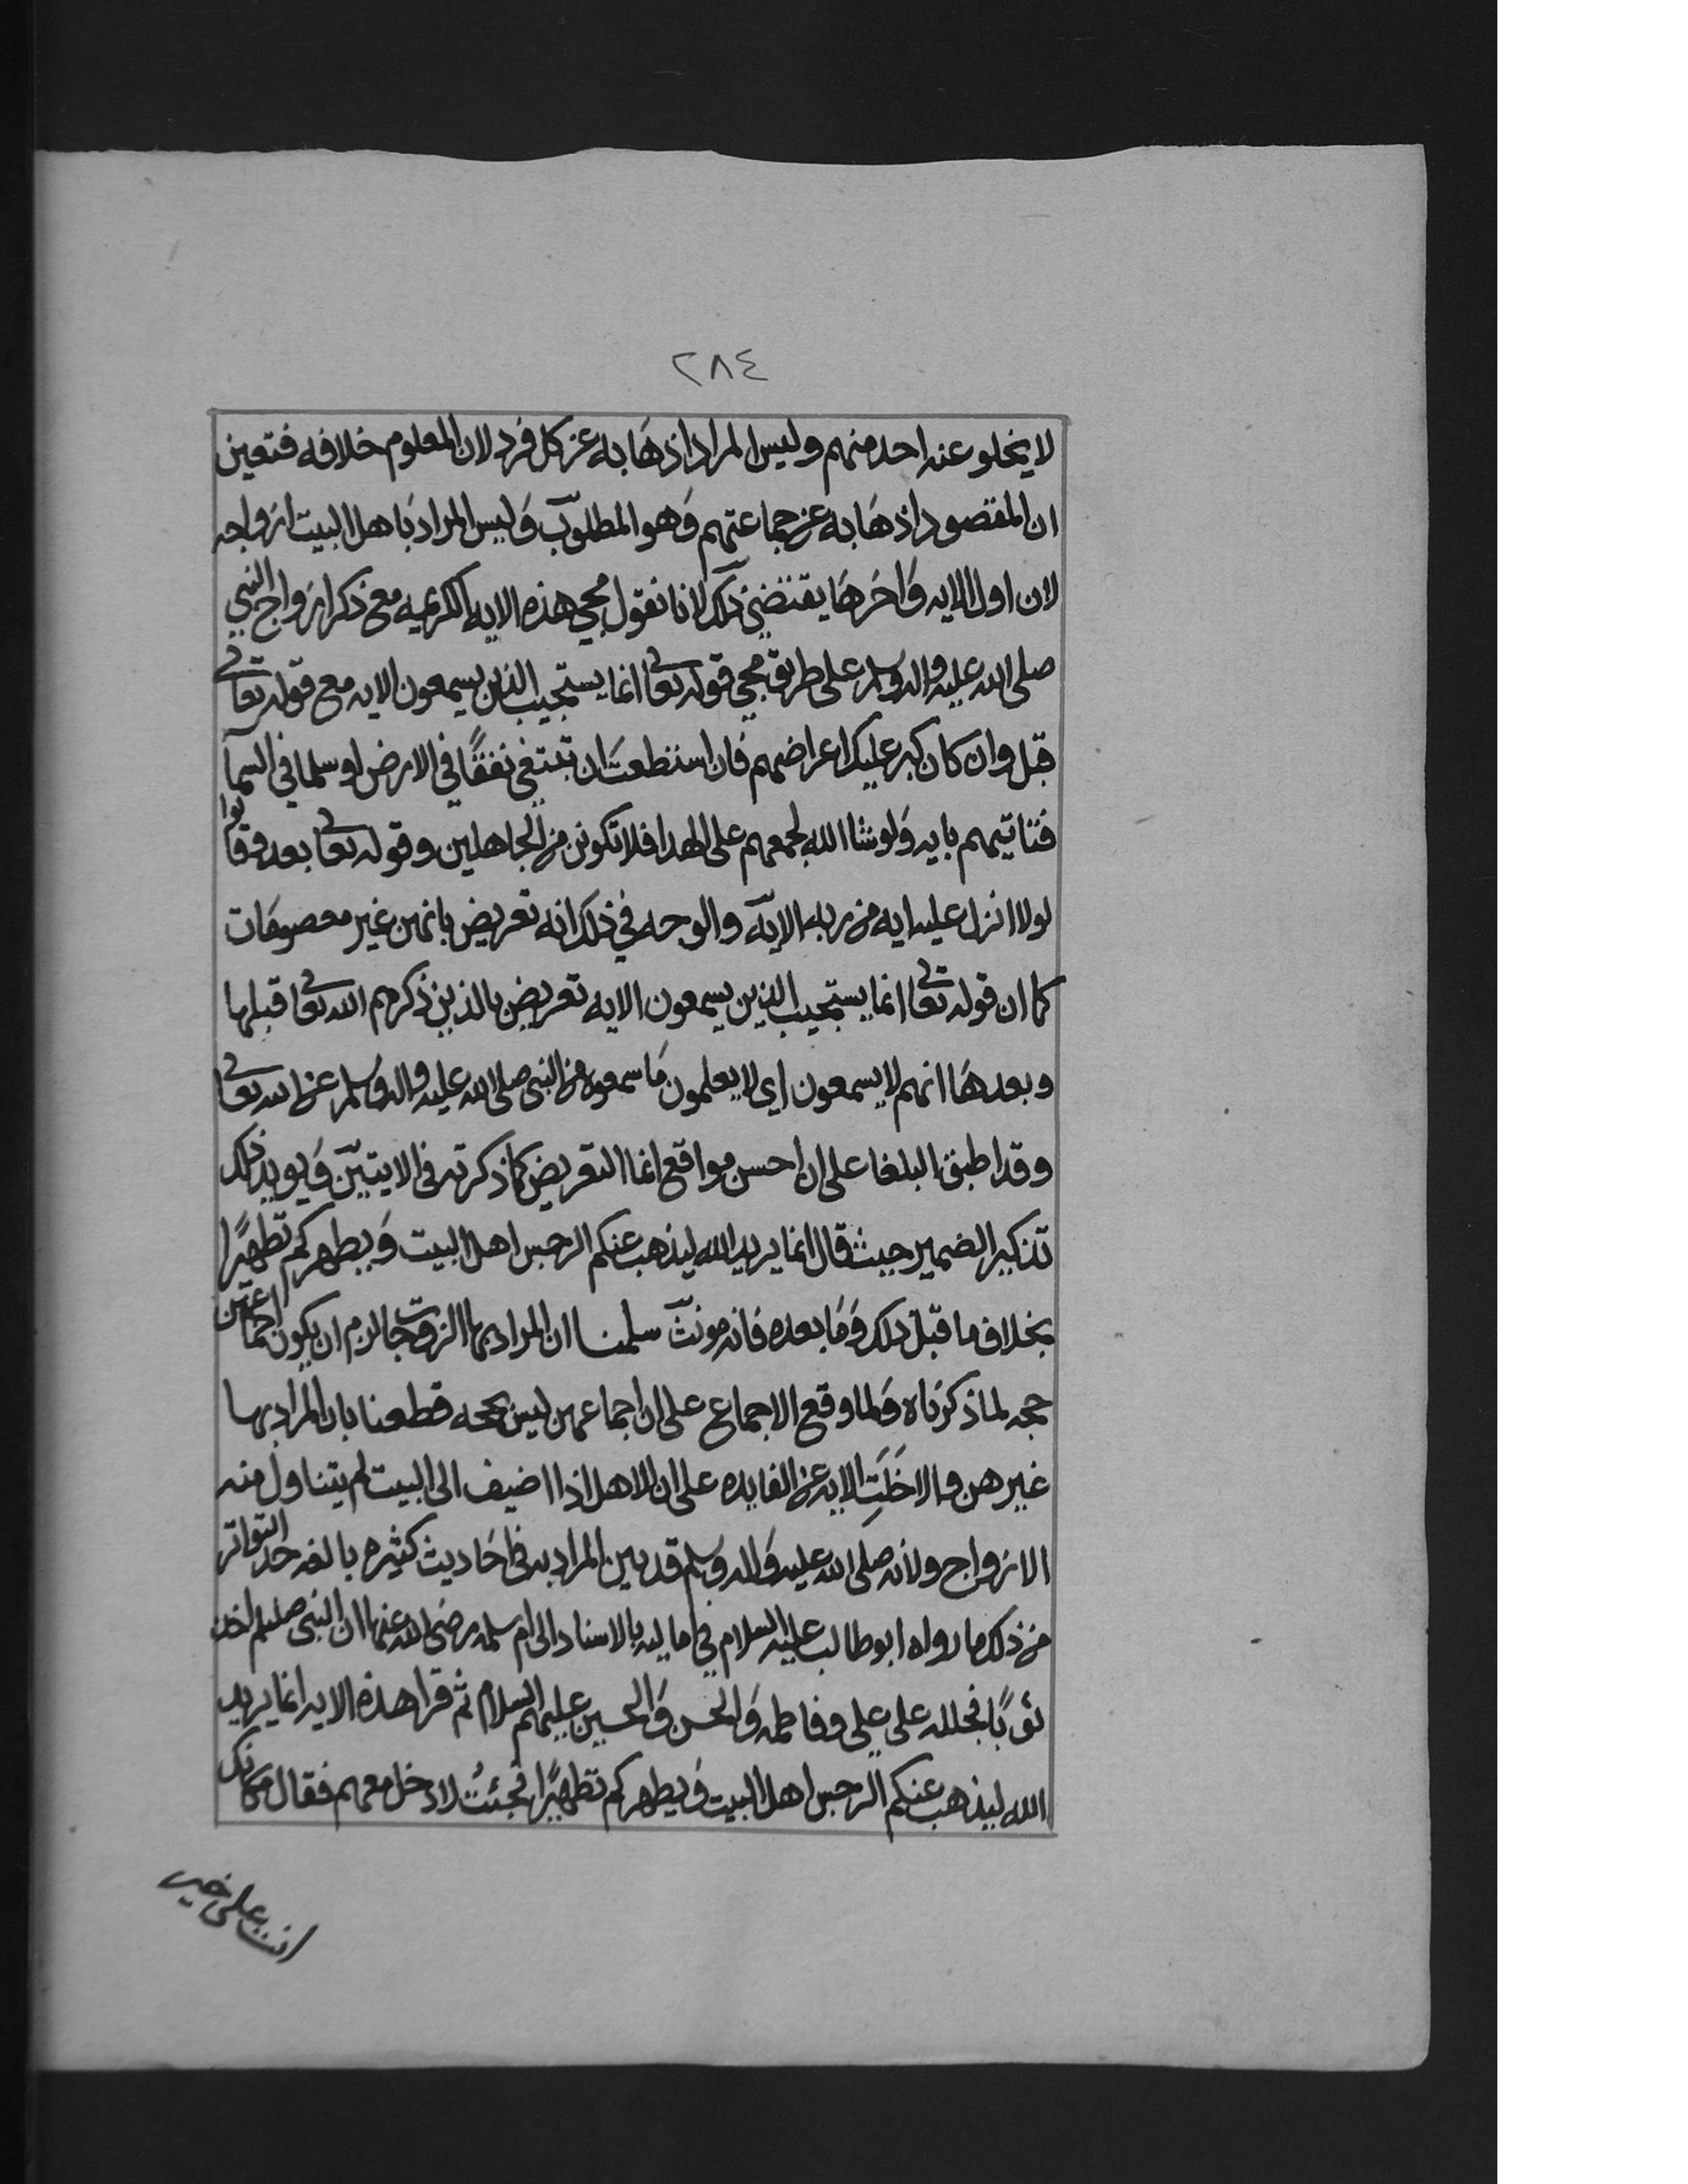 ٢٨٤
لا يخلو عنه احد منهم وليس المراد اذهَابه عن كل فرد لان المعلوم خلافه فتعين
ان المقصود اذهَابه عن جماعتهم وَهو المطلوب وَليس المراد بَاهل البيت ازواجه
لان اول الايه وَاخرهَا يقتضي ذلك لانا نقول مجي هذه الايه الكريمه مع ذكر ازواج النبي
صلى الله عليه واله وسلم على طريق مجي قوله تعالى انما يستجيب الذين يسمعون الايه مع قوله تعالى
قبل وان كان كبر عليك اعراضهم فان استطعتَ ان تبتغي نفقًا في الارض او سلما في السمآ
فتاتيهم بايه وَلو شا الله لجمعهم على الهدا فلا تكونن من الجاهلين وقوله تعالى بعد وقالوا
لولا انزل عليه ايه من ربه الايه والوجه في ذلك انه تعريض بانهن غير معصومَات
كما ان قوله تعالى انما يستجيب الذين يسمعون الايه تعريض بالذين ذكرهم الله تعالى قبلها
وبعدهَا انهم لا يسمعون اي لا يعلمون مَا سمعوه من النبي صلى الله عليه واله وَسلم عن الله تعالى
وقد اطبق البلغا على ان احسن مواقع انما التعريض كما ذكرته في الايتين وَيويد ذلك
تذكير الضمير حيث قال انما يريد الله ليذهب عنكم الرجس اهل البيت وَيطهركم تطهيرًا
بخلاف ما قبل ذلك وَمَا بعده فانه مونث سلمنا ان المراد بها الزوجات لزم ان يكون اجماعهن
حجه لما ذكرنَاه وَلما وقع الاجماع على ان اجماعهن ليس بحجه قطعنا بان المراد بها
غيرهن والا خَلَتِ الايه عن الفايده على ان الاهل اذا اضيف الى البيت لم يتناول منه
الازواج ولانه صلى الله عليه وَاله وَسلم قد بين المراد به في احَاديث كثيره بالغه حد التواتر
من ذلك ما رواه ابو طالب عليه السلام في اماليه بالاسناد الى ام سلمه رضي الله عنها ان النبي صلعم اخذ
ثوبًا فجلله على علي وفاطمه وَالحسن وَالحسين عليهم السلام ثم قرا هذه الايه انما يريد
الله ليذهب عنكم الرجس اهل البيت وَيطهركم تطهيرًا فجئتُ لادخل معهم فقال مكانك
انت على خير